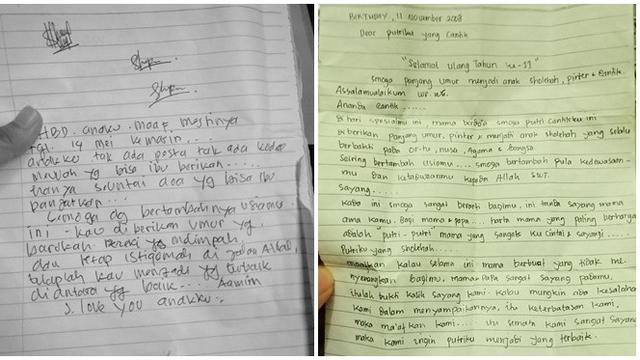 HBD.. anakku. maaf mestinya
tgl. 14 mei kemarin...
anakku tak ada pesta tak ada kado
mewah yg bisa ibu berikan.....
hanya seuntai doa yg bisa ibu
panjatkan...
Semoga dg bertambahnya usiamu
ini - kau di berikan umur yg
barokah rezeki yg melimpah,
dan tetap istiqomah di jalan Allah,
tetaplah kau menjadi yg terbaik
di antara yg baik... Aamiin
I love you anakku..
BIRTHDAY, 11 November 2008
Dear putriku yang Cantik
"Selamat Ulang Tahun ke-11"
Semoga panjang umur menjadi anak sholehah, pinter & cantik.
Assalamualaikum wr. wb.
Ananda cantik......
Di hari spesialmu ini, mama berdo'a smoga putri cantikku ini
di berikan panjang umur, pinter & menjadi anak sholehah yang selalu
berbakti pada or-tu, nusa, Agama & bangsa.
Seiring bertambah usiamu.... smoga bertambah pula kedewasaan-
mu dan ketaqwaanmu kepada Allah SWT.
Sayang.....
kado ini smoga sangat berarti bagimu, ini tanda sayang mama
ama kamu. Bagi mama & papa.... harta mama yang paling berharga
adalah putri-putri mama yang sangat ku cintai & sayangi.....
Putriku yang sholehah....
maafkan kalau selama ini mama berbuat yang tidak me-
nyenangkan bagimu, mama papa sangat sayang padamu,
itulah bukti kasih sayang kami. kalau mungkin ada kesalahan
kami dalam menyampaikannya, itu keterbatasan kami,
maka ma'afkan kami.... itu semata kami sangat sayang
maka kami ingin putriku menjadi yang terbaik.